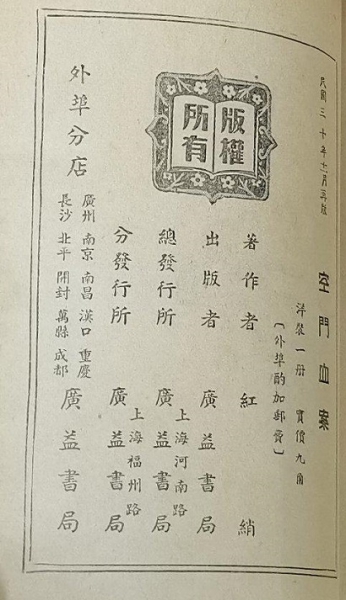 民國三十年十一月三版
空門血案
洋裝一册 實價九角
〔外埠酌加郵費〕
版權所有
著作者 紅綃
出版者 廣益書局
總發行所 上海河南路 廣益書局
分發行所 上海福州路 廣益書局
外埠分店 廣州 南京 南昌 漢口 重慶
長沙 北平 開封 萬縣 成都 廣益書局